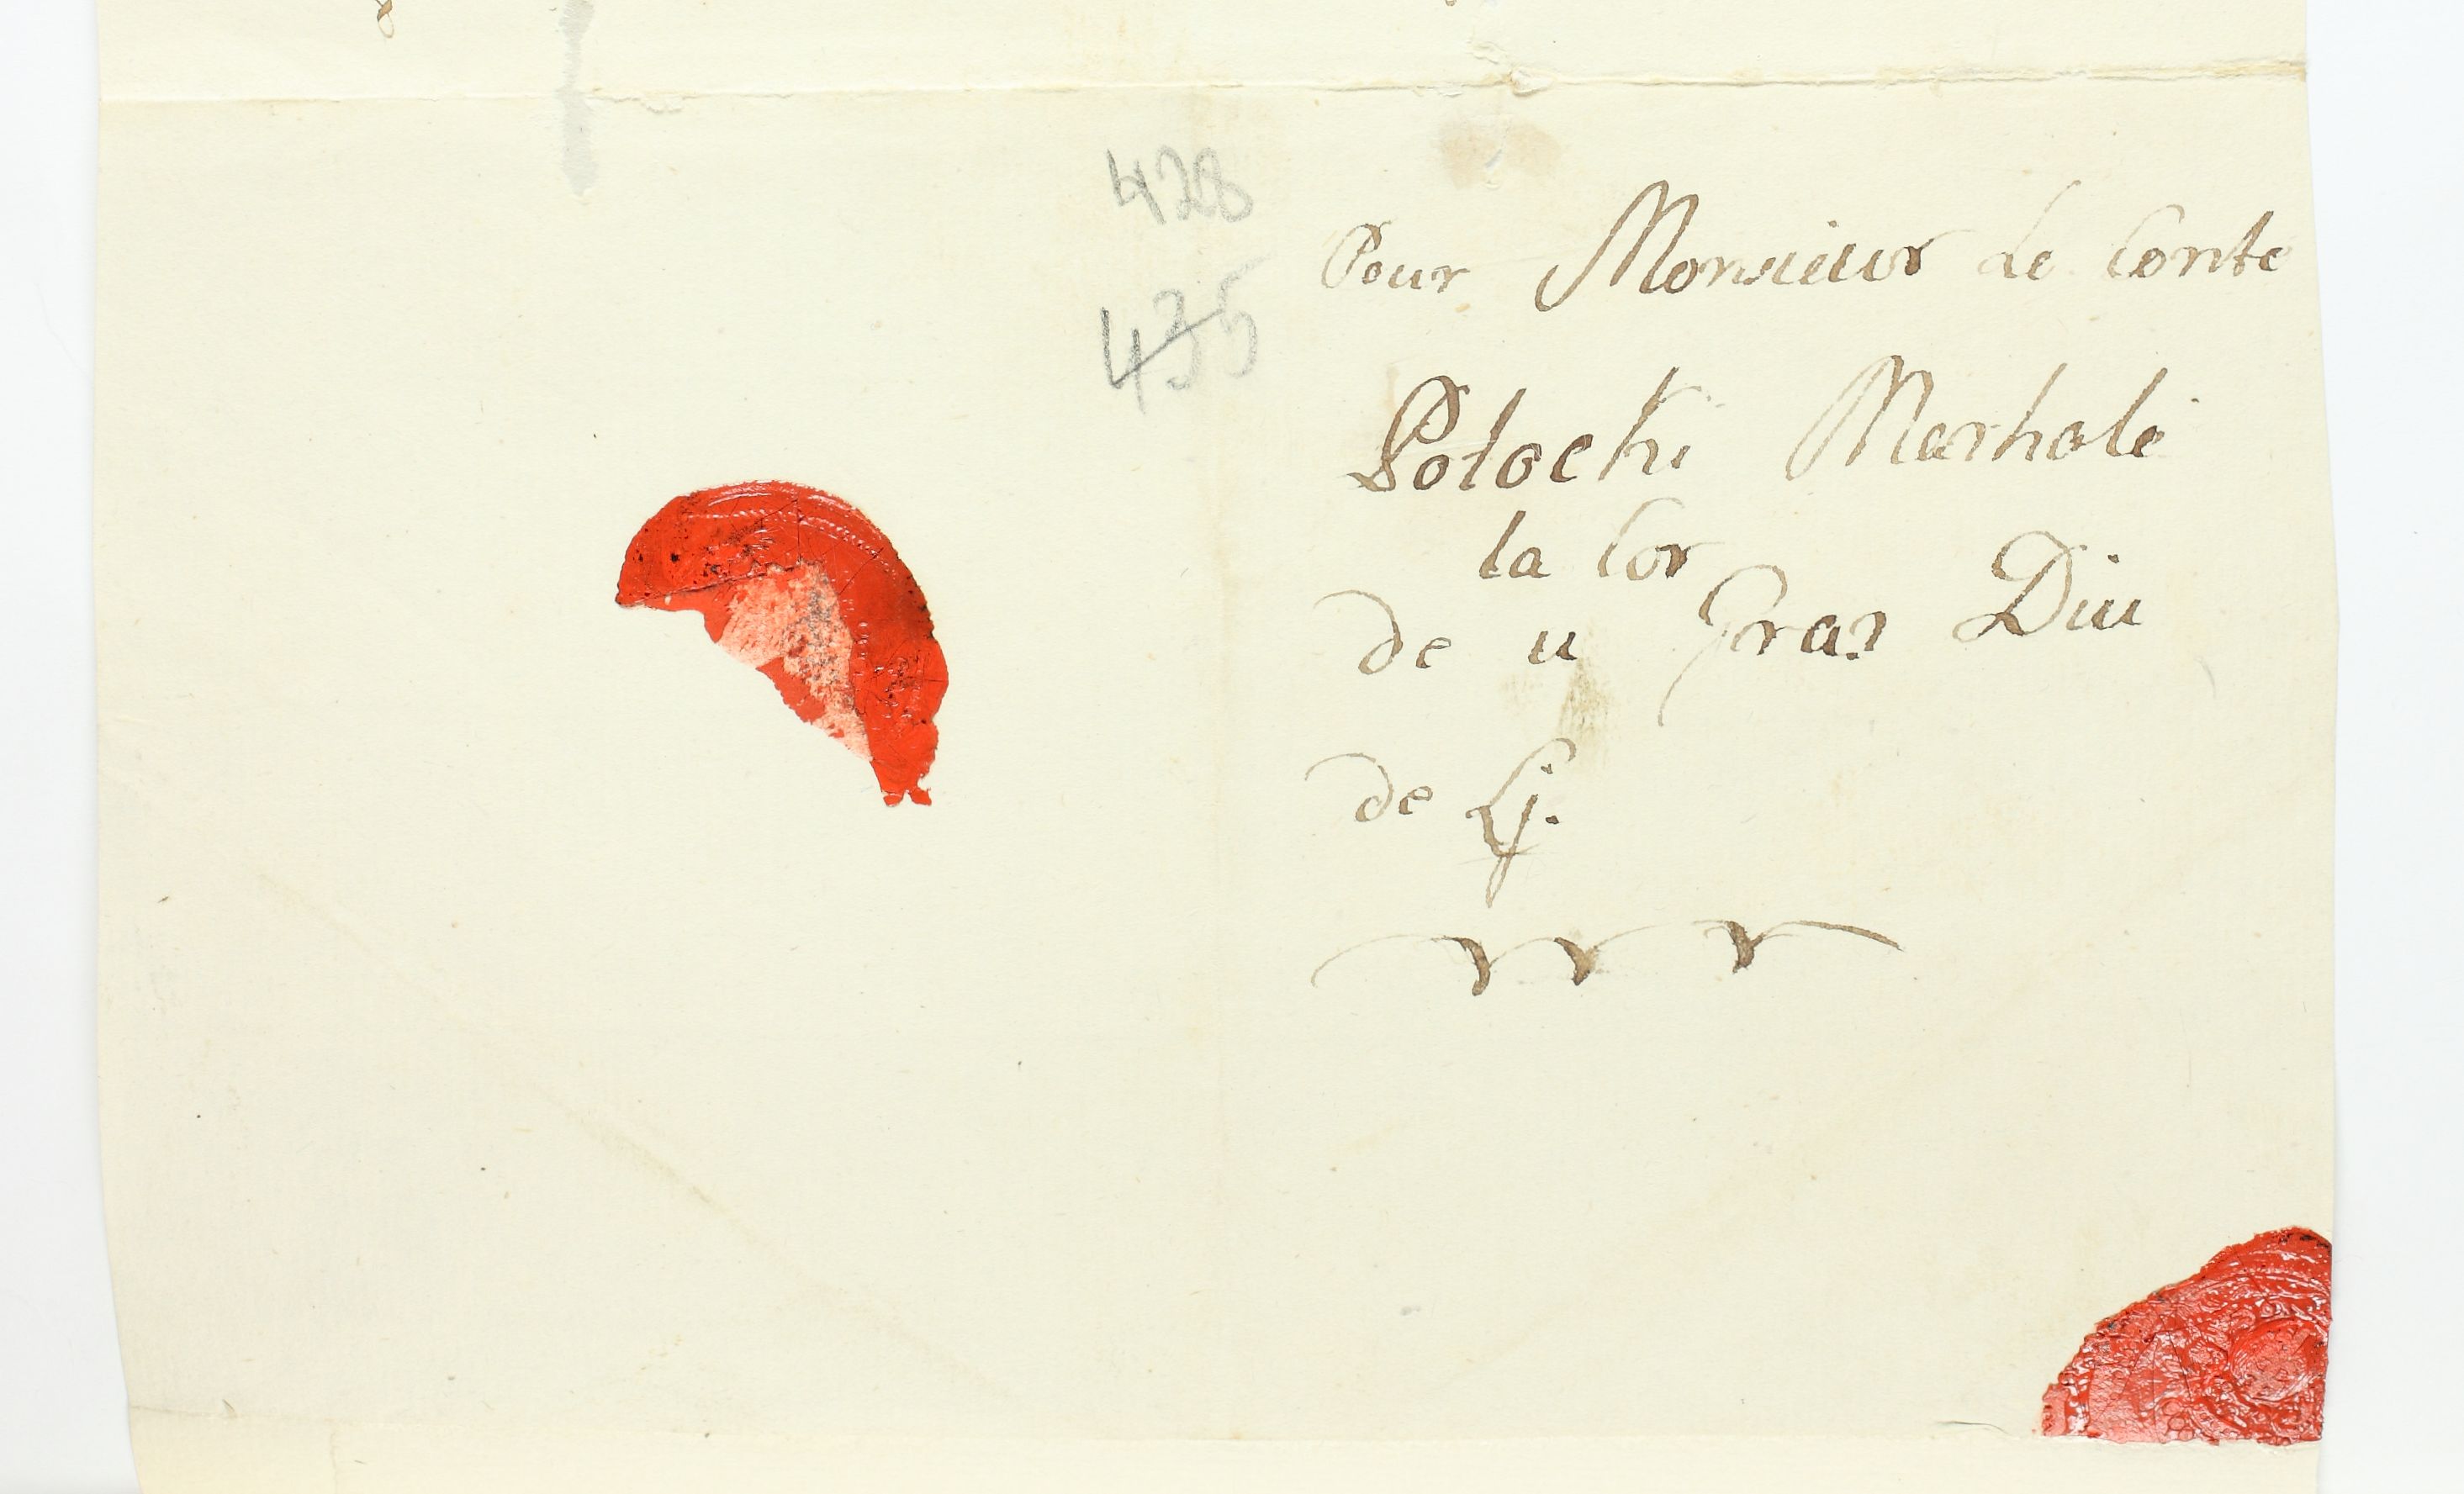 428
435
Pour Monsieur Le Conte
Potocki Marhale
la Cor
de u Gran Diu
de L